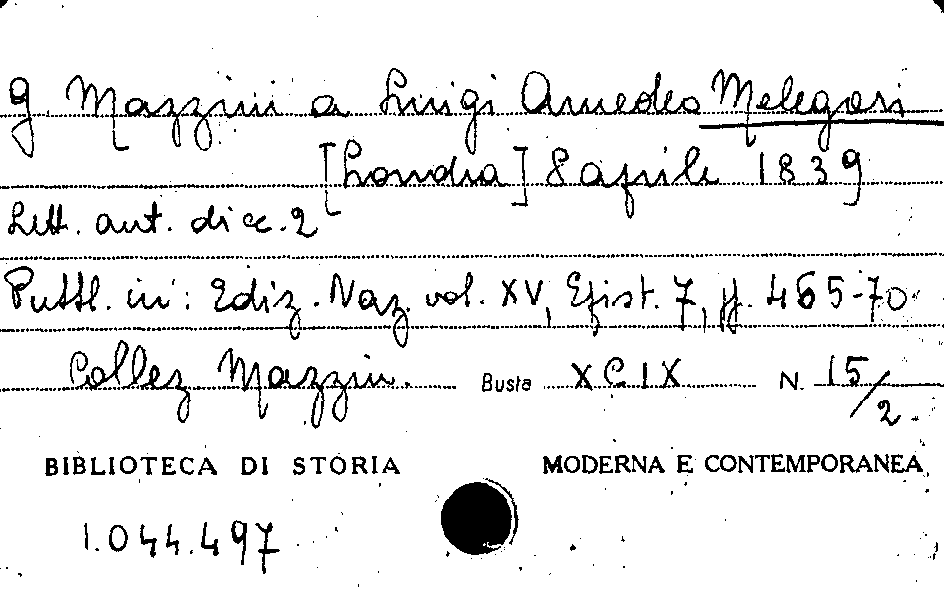 G. Mazzini a Luigi Amedeo Melegari
[Londra] 8 aprile 1839
Lett. aut. di cc. 2
Pubbl. in: Ediz. Naz. vol. XV, Epist. 7, pp. 465-70
Collez. Mazzini. Busta XCIX N. 15/2.
BIBLIOTECA DI STORIA MODERNA E CONTEMPORANEA
1.044.497